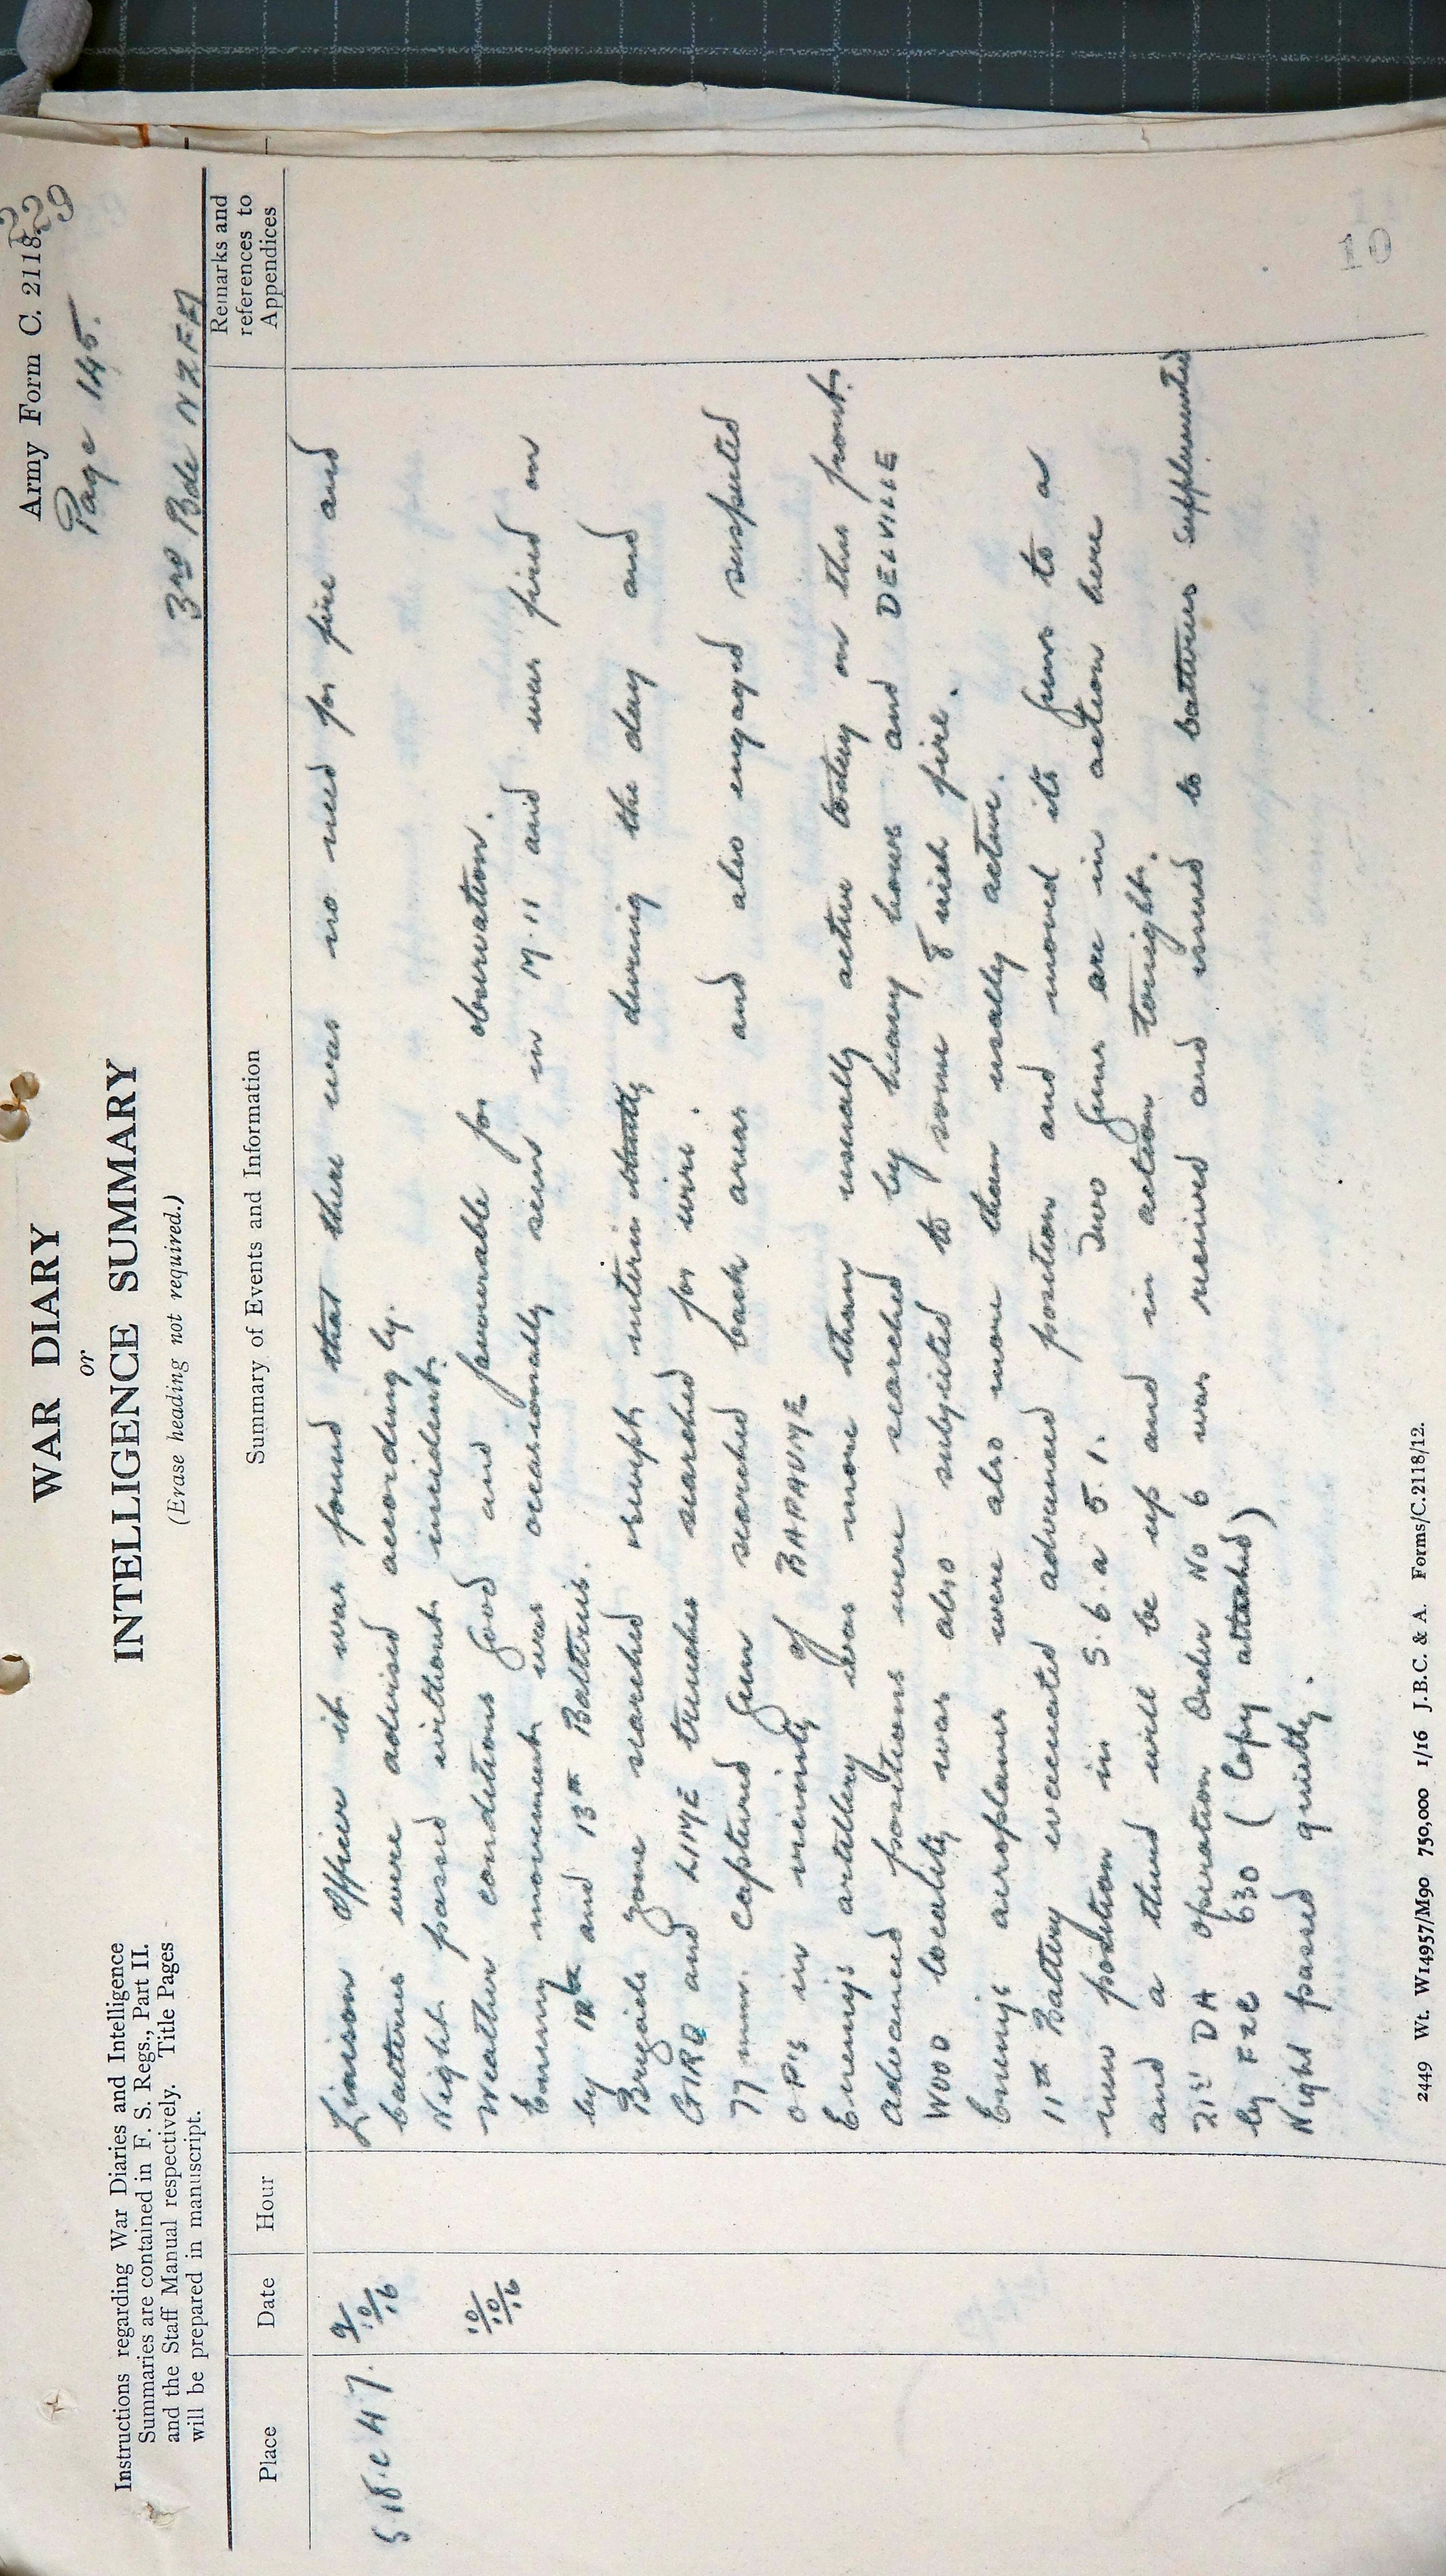 Army Form C. 2118.
229
Page 145.
WAR DIARY
or
INTELLIGENCE SUMMARY
(Erase heading not required.)
3rd Bde NZFA
Instructions regarding War Diaries and Intelligence
Summaries are contained in F. S. Regs., Part II.
and the Staff Manual respectively. Title Pages
will be prepared in manuscript.
Place Date Hour Summary of Events and Information Remarks and references to Appendices
S.18.c.4.7. 9/10/16 Liaison Officer it was found that there was no need for fire and
batteries were advised accordingly.
Night passed without incident.
10/10/16 Weather conditions good and favourable for observation.
Enemy movement was occasionally seen in M.11 and was fired on
by 12th and 13th Batteries.
Brigade zone searched during the day and
GIRD and LIME trenches searched for wire.
77 mm. captured gun searched back areas and also engaged suspected
O.P's in vicinity of BAPAUME
Enemy's artillery was more than usually active today on this front.
Advanced positions were searched by heavy hows and DELVILLE
WOOD locality was also subjected to some 8 inch fire.
Enemy's aeroplanes were also more than usually active.
11th Battery evacuated advanced position and moved its guns to a
new position in S.6.a.5.1. Two guns are in action here
and a third will be up and in action tonight.
21st DA Operation Order No 6 was received and issued to batteries supplemented
by 630 (Copy attached)
Night passed quietly.
10
2449 Wt. W14957/M90 750,000 1/16 J.B.C. & A. Forms/C.2118/12.